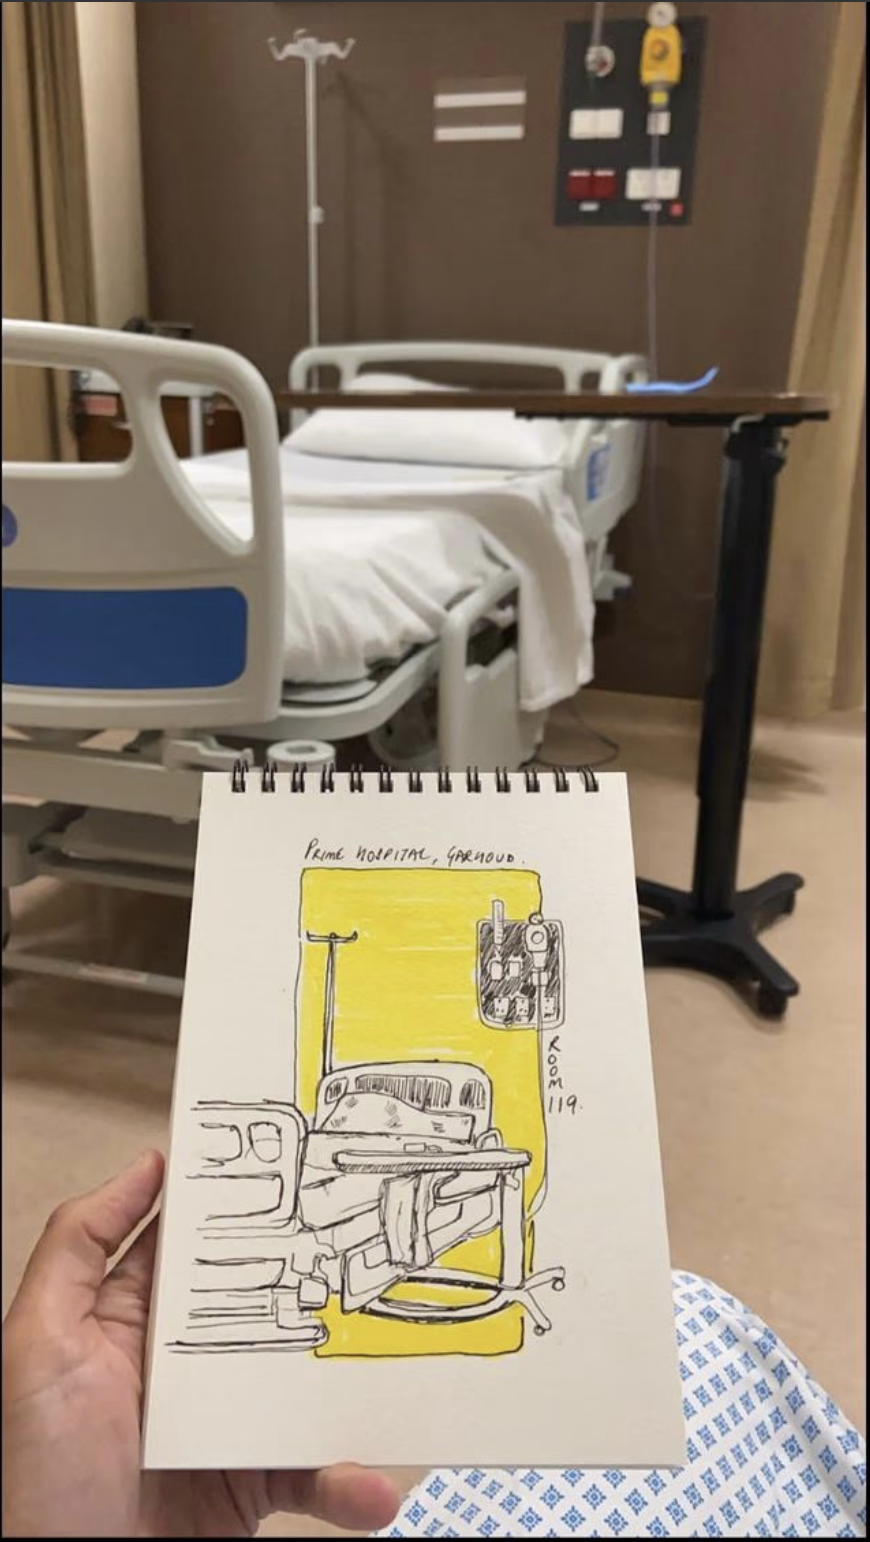 PRIME HOSPITAL, GARHOUD.
ROOM
119.